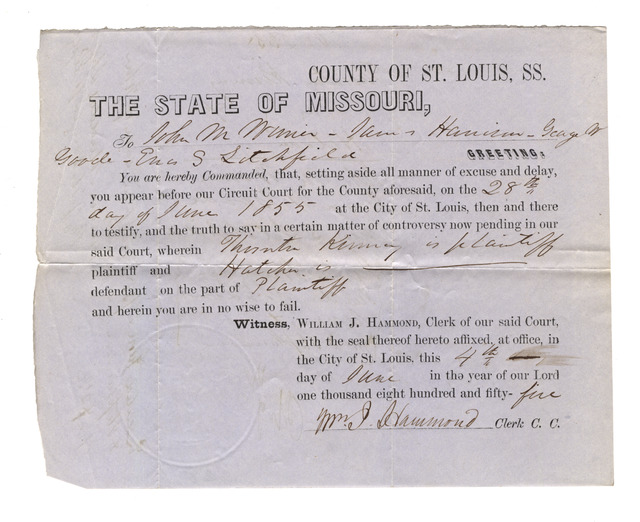 COUNTY OF ST. LOUIS, SS.
THE STATE OF MISSOURI,
To John M Wimer - James Harrison - George W
Goode - Enos S Litchfield GREETING:
You are hereby Commanded, that, setting aside all manner of excuse and delay,
you appear before our Circuit Court for the County aforesaid, on the 28th
day of June 1855 at the City of St. Louis, then and there
to testify, and the truth to say in a certain matter of controversy now pending in our
said Court, wherein Thornton Kinney is plaintiff
plaintiff and Hatcher is
defendant on the part of Plaintiff
and herein you are in no wise to fail.
Witness, WILLIAM J. HAMMOND, Clerk of our said Court,
with the seal thereof hereto affixed, at office, in
the City of St. Louis, this 4th
day of June in the year of our Lord
one thousand eight hundred and fifty-five
Wm. J. Hammond Clerk C. C.